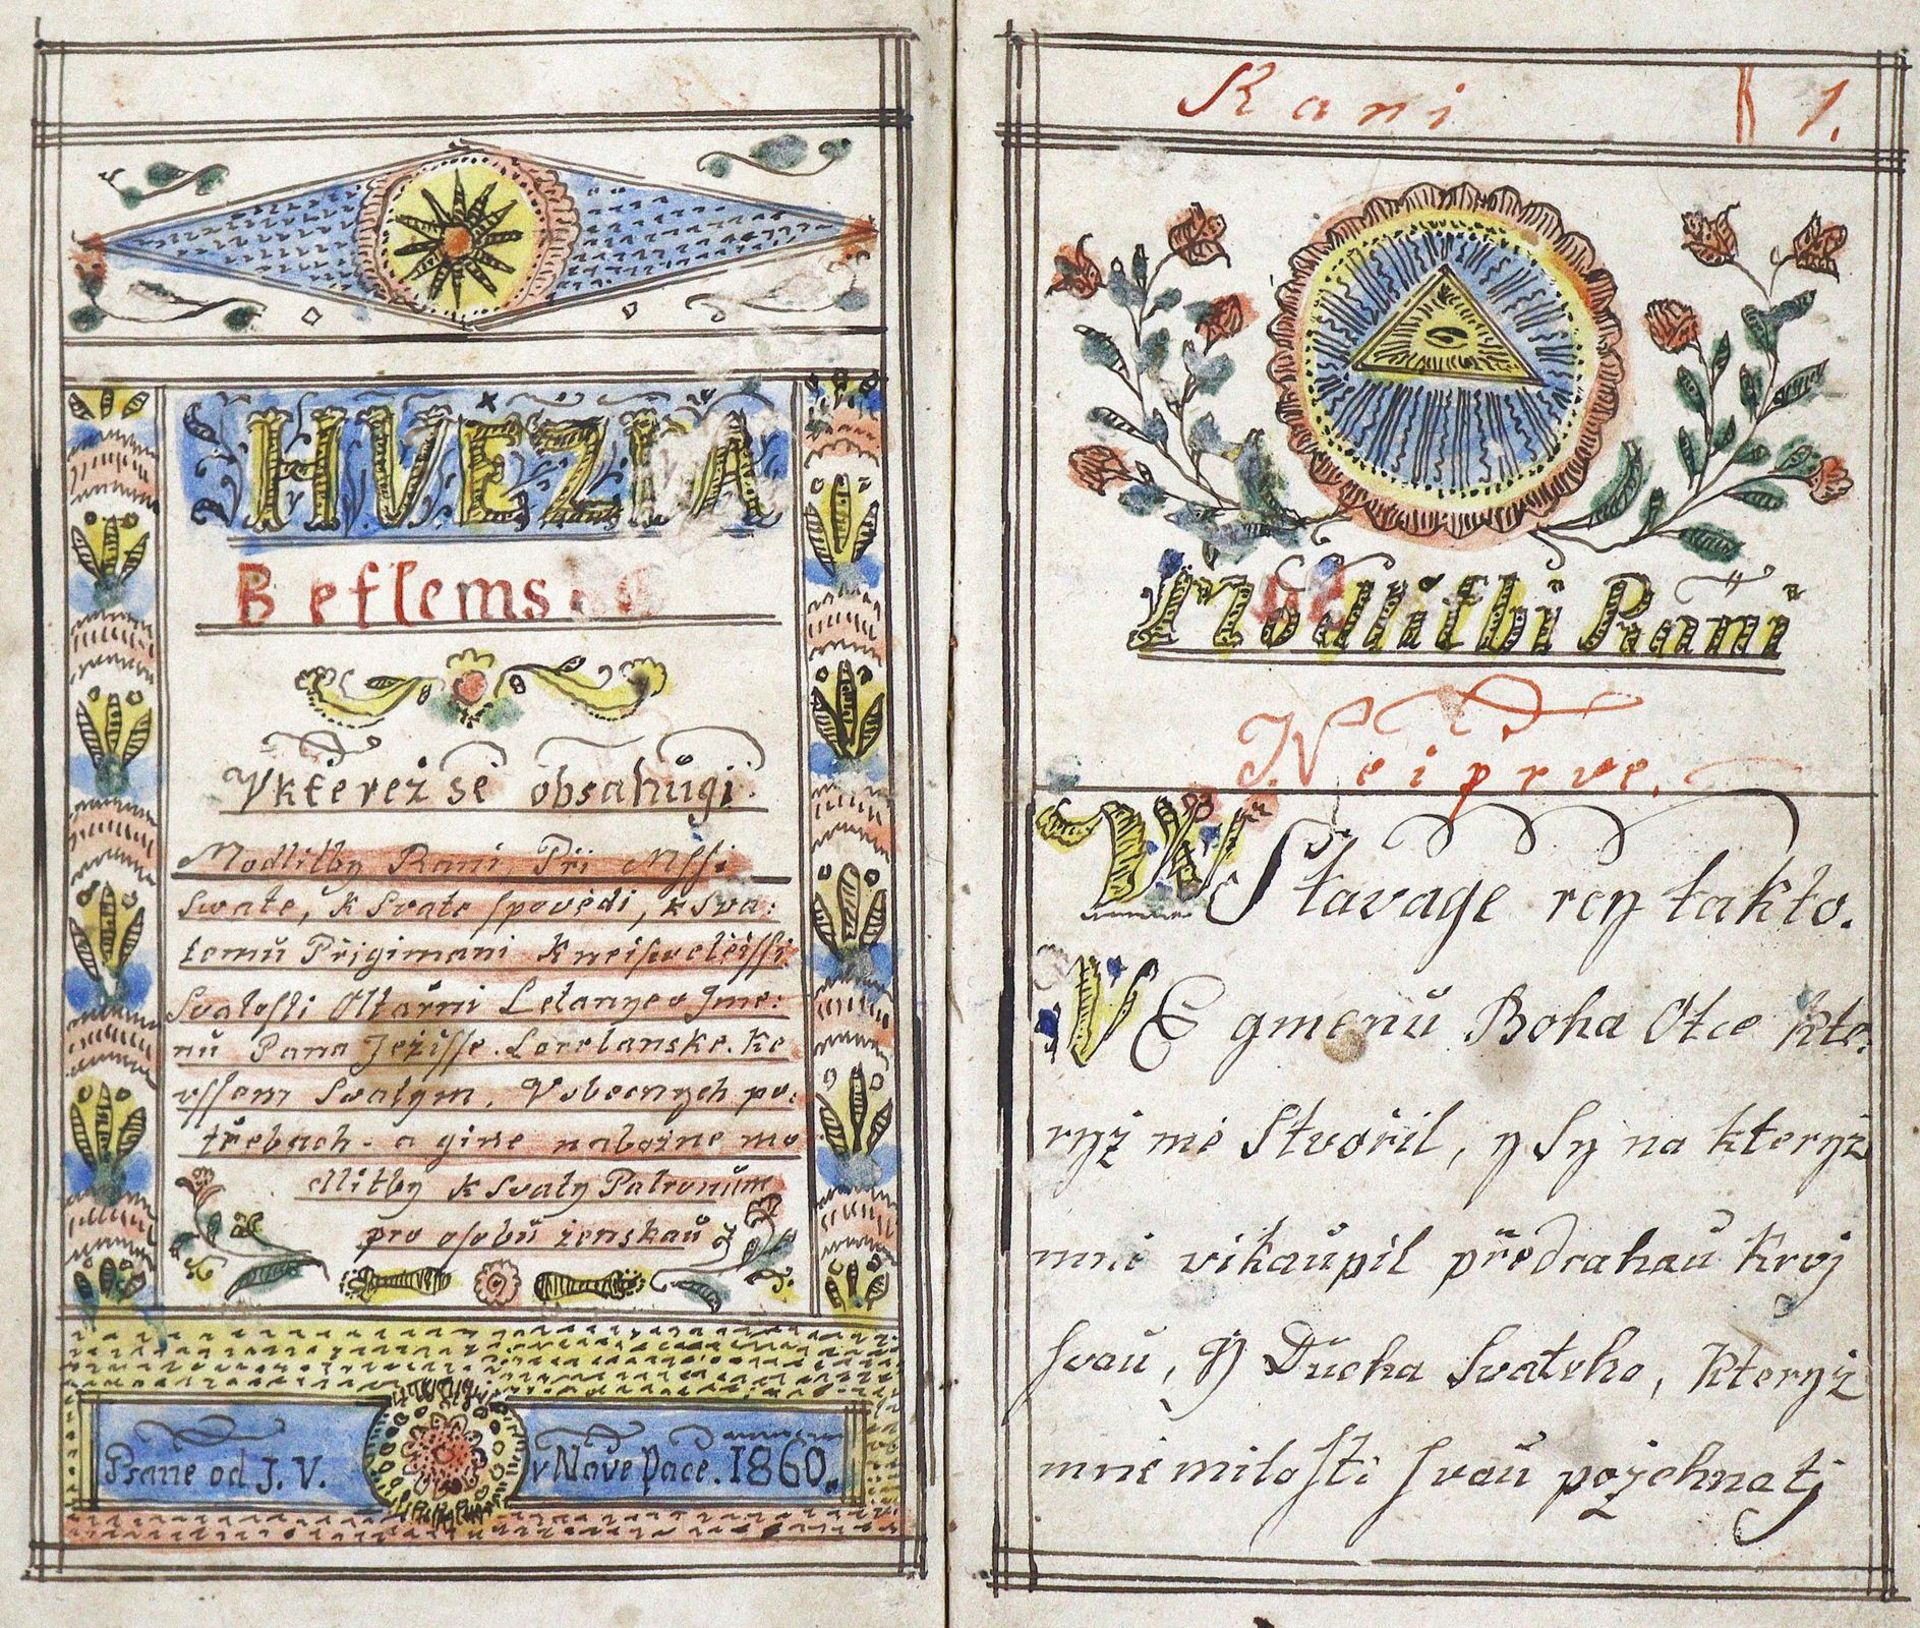 HVEZDA
Beflemska
Vkterež se obsahůgi
Modlitby Rani, Při Mssi
Swate, k Svate spovědi, k Sva:
temů Přigimani K neisvěteissi
Svatosti Oltařni Letanye o Jme:
nů Pana Ježisse. Loretanske. Ke
vssem Svatym. Vobecnych po:
třebach - a gine nabožne mo
dlitby k Svaty Patronům
pro osobů ženskaů
Psane od J. V. v Nove Pace. 1860.
Rani 1.
Modlitbi Rani
Neiprve.
W Stavage rcy takto.
VE gmenů Boha Otce kte:
ryž mě Stvořil, y Syna kteryž
mně vikaupil předrahaů Krvj
svaů, Y Ducha Svateho, Kteryž
mně milosti svaů požehnatj